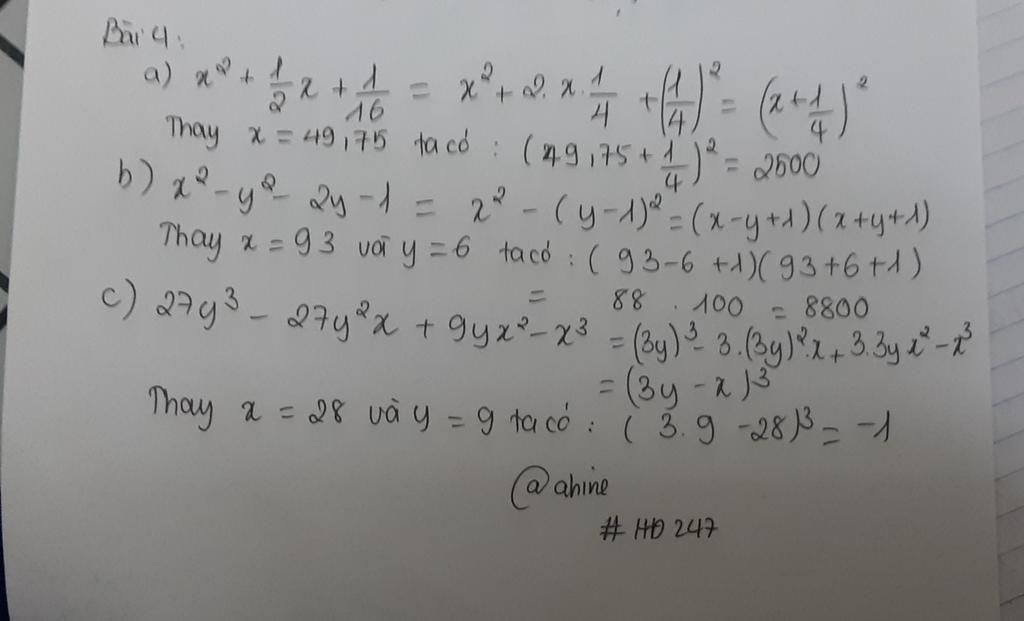 Bài 4:
a) x² + 1/2 x + 1/16 = x² + 2. x. 1/4 + (1/4)² = (x + 1/4)²
Thay x = 49,75 ta có : (49,75 + 1/4)² = 2500
b) x² - y² - 2y - 1 = x² - (y - 1)² = (x - y + 1)(x + y + 1)
Thay x = 93 và y = 6 ta có : (93 - 6 + 1)(93 + 6 + 1)
= 88 . 100 = 8800
c) 27y³ - 27y²x + 9yx² - x³ = (3y)³ - 3.(3y)².x + 3.3yx² - x³
= (3y - x)³
Thay x = 28 và y = 9 ta có : (3.9 - 28)³ = -1
@ahine
# HD 247